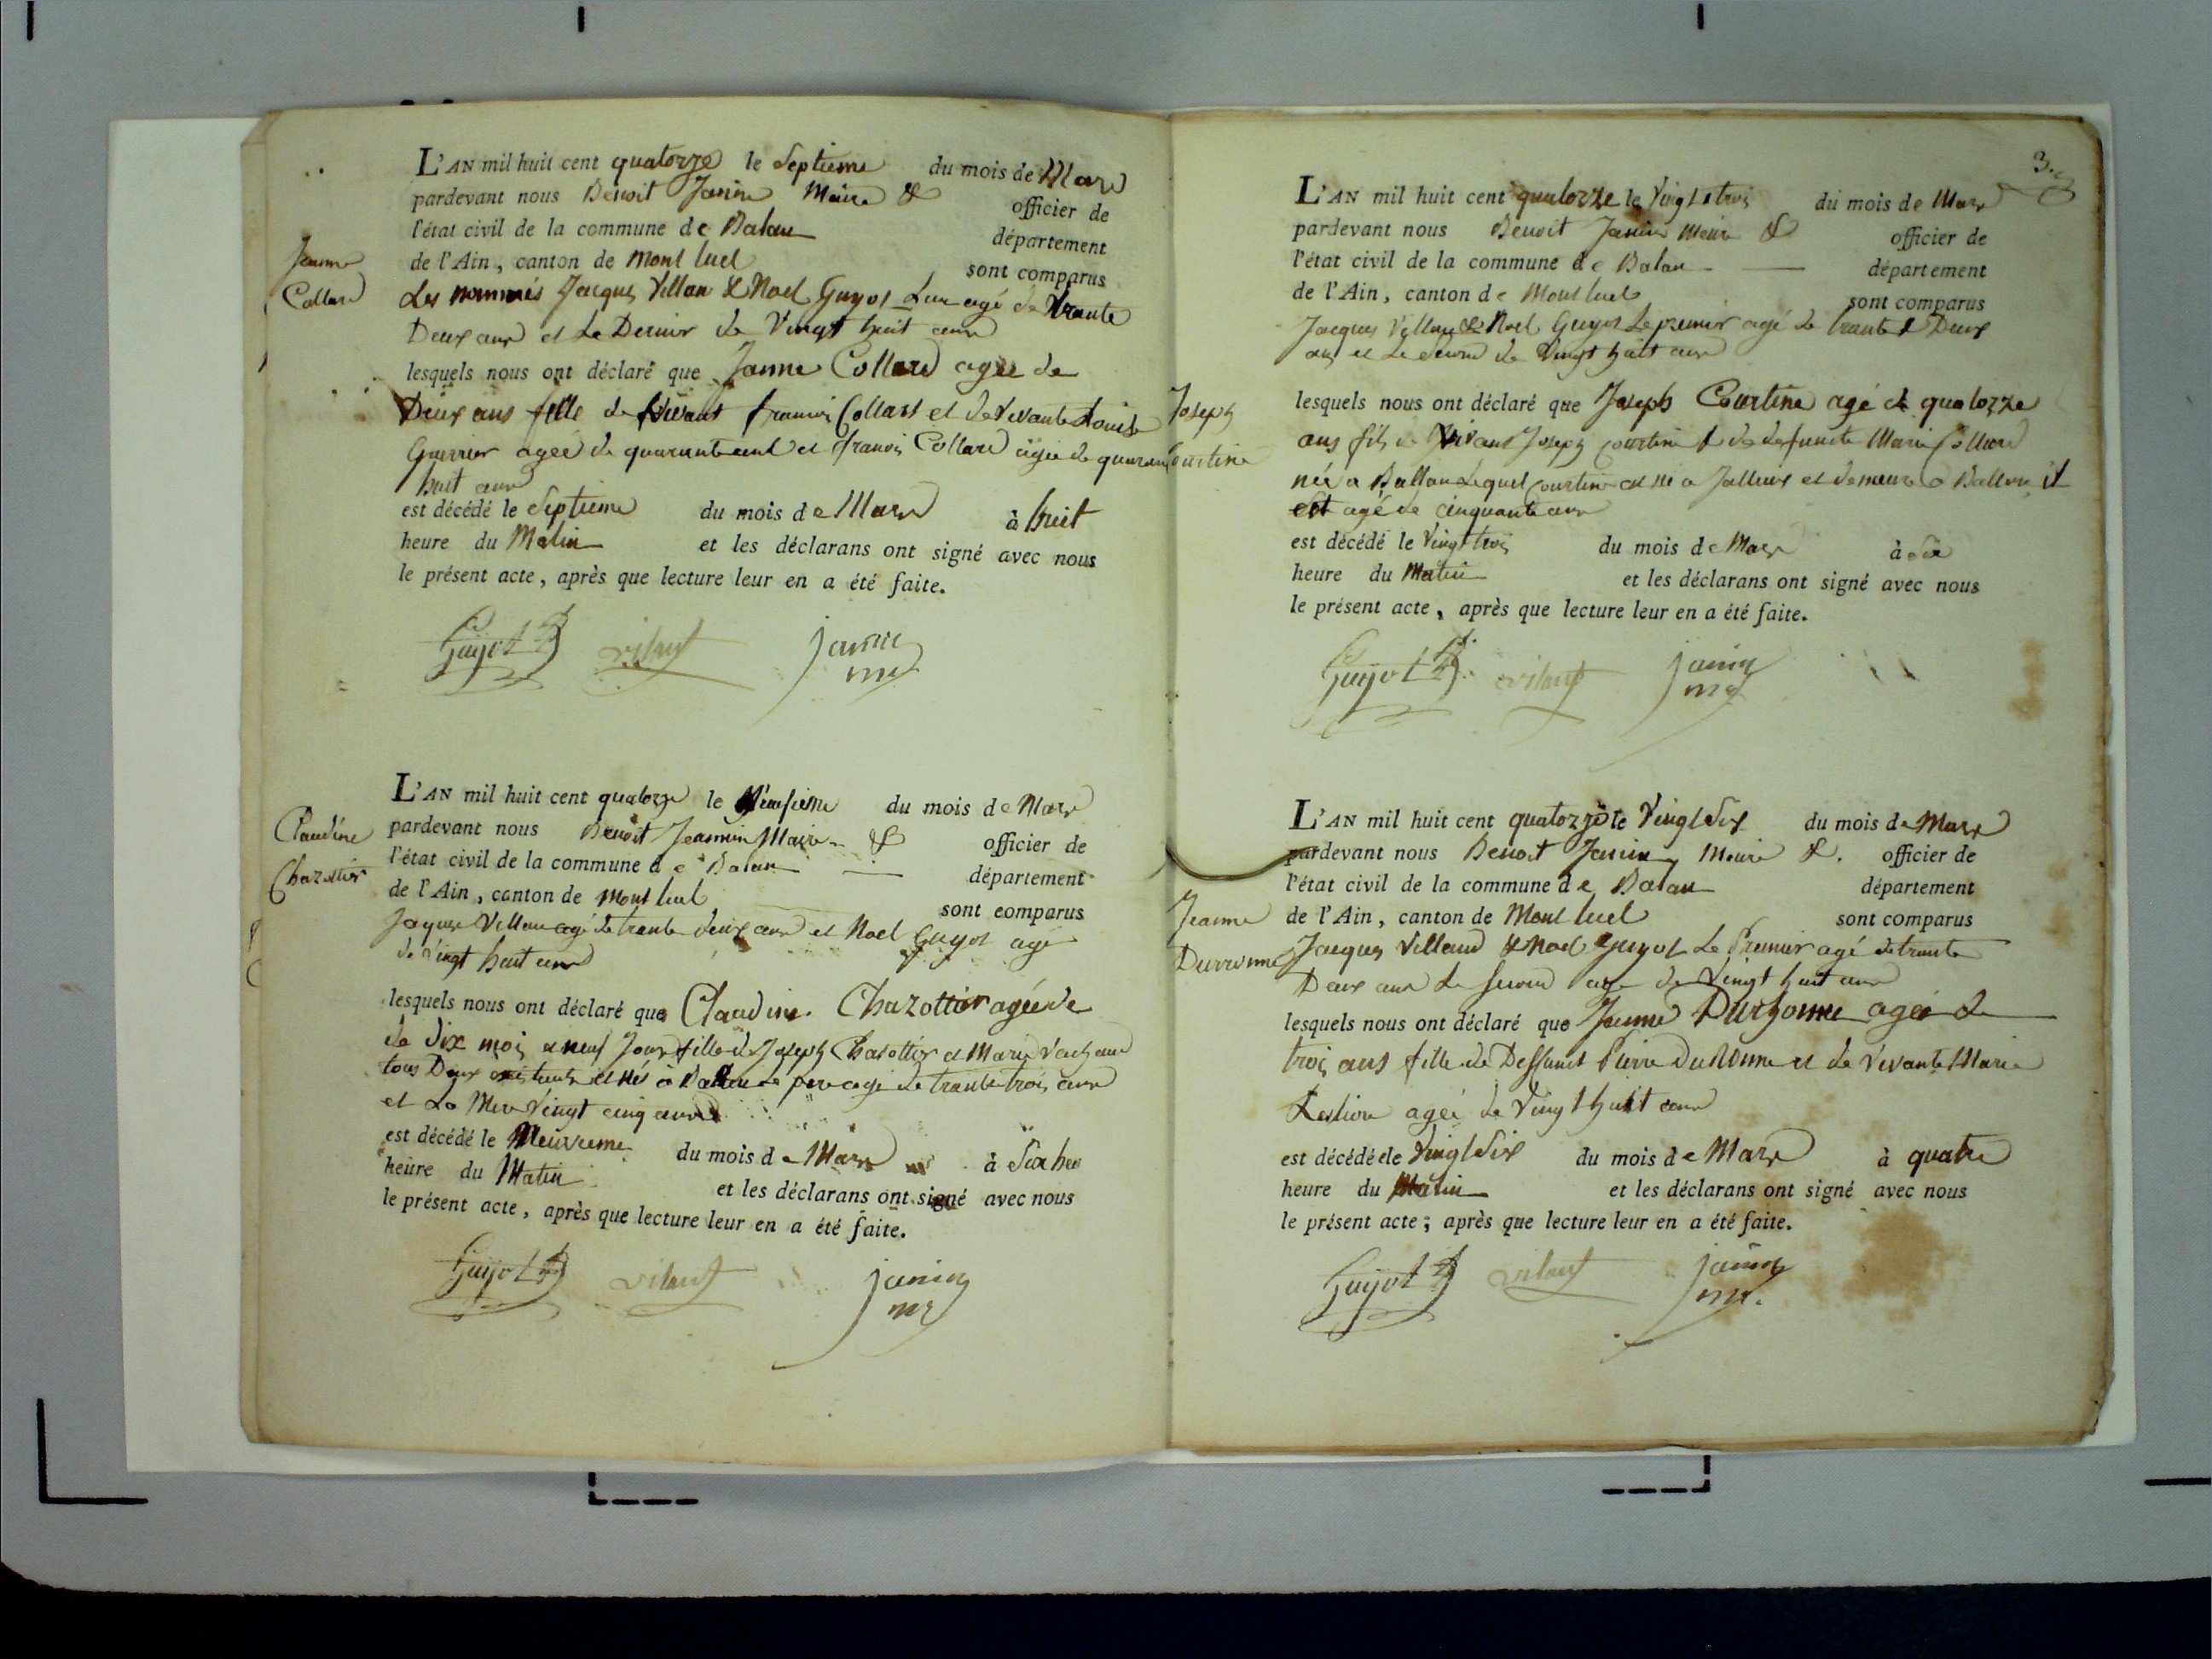 Jeanne
Collard
L'AN mil huit cent quatorze le Septieme du mois de Mars
pardevant nous Benoit Janin Maire & officier de
l'état civil de la commune de Balan département
de l'Ain, canton de Mont luel sont comparus
Les nommés Jacques Villan & Noel Guyot Lun agé de trante
Deux ans et Le Dernier de Vingt huit ans
lesquels nous ont déclaré que Janne Collard agée de
Deux ans fille de Vivant francois Collard et de Vivante Louise
Guerrier agee de quarante et francois Collard agée de quarante
huit ans
est décédé le Septieme du mois de Mars à huit
heure du Matin et les déclarans ont signé avec nous
le présent acte, après que lecture leur en a été faite.
Guyot vilant janin
mr
Claudine
Chazottier
L'AN mil huit cent quatorze le du mois de Mars
pardevant nous Benoit Jeannin Maire & officier de
l'état civil de la commune de Balan département
de l'Ain, canton de Mont luel sont comparus
Jaques Villan agé de trante deux ans et Noel Guyot agé
de Vingt huit ans
lesquels nous ont déclaré que Claudine Chazottier agée de
de dix mois et neuf Jours fille de Joseph Chazottier et Marie
tous Deux et Nés à Le pere agé de trante trois ans
et La Mere Vingt cinq ans
est décédé le Neuvieme du mois de Mars à Six heu
heure du Matin et les déclarans ont signé avec nous
le présent acte, après que lecture leur en a été faite.
Guyot vilant janin
mr
3.
Joseph
Courtine
L'AN mil huit cent quatorze le Vingt trois du mois de Mars
pardevant nous Benoit Janin Maire & officier de
l'état civil de la commune de Balan département
de l'Ain, canton de Mont luel sont comparus
Jacques Villan & Noel Guyot Le premier agé de trante Deux
ans et Le Second de Vingt huit ans
lesquels nous ont déclaré que Joseph Courtine agé de quatorze
ans fils de Vivant Joseph Courtine & de defuncte Marie Collard
née a Ballan Lequel Courtine est né a Jallieux et demeure a Ballan il
est agé de cinquante ans
est décédé le Vingt trois du mois de Mars à Six
heure du Matin et les déclarans ont signé avec nous
le présent acte, après que lecture leur en a été faite.
Guyot vilant janin
mr
Jeanne
Durronne
L'AN mil huit cent quatorze le Vingt Six du mois de Mars
pardevant nous Benoit Janin Maire &. officier de
l'état civil de la commune de Balan département
de l'Ain, canton de Mont luel sont comparus
Jacques Villand & Noel Guyot Le Premier agé de trante
Deux ans Le Second agé de Vingt huit ans
lesquels nous ont déclaré que Jeanne agée de
trois ans fille de Deffunct Pierre et de Vivante Marie
agée de Vingt huit ans
est décédé le Vingt Six du mois de Mars à quatre
heure du Matin et les déclarans ont signé avec nous
le présent acte; après que lecture leur en a été faite.
Guyot vilant janin
mr.